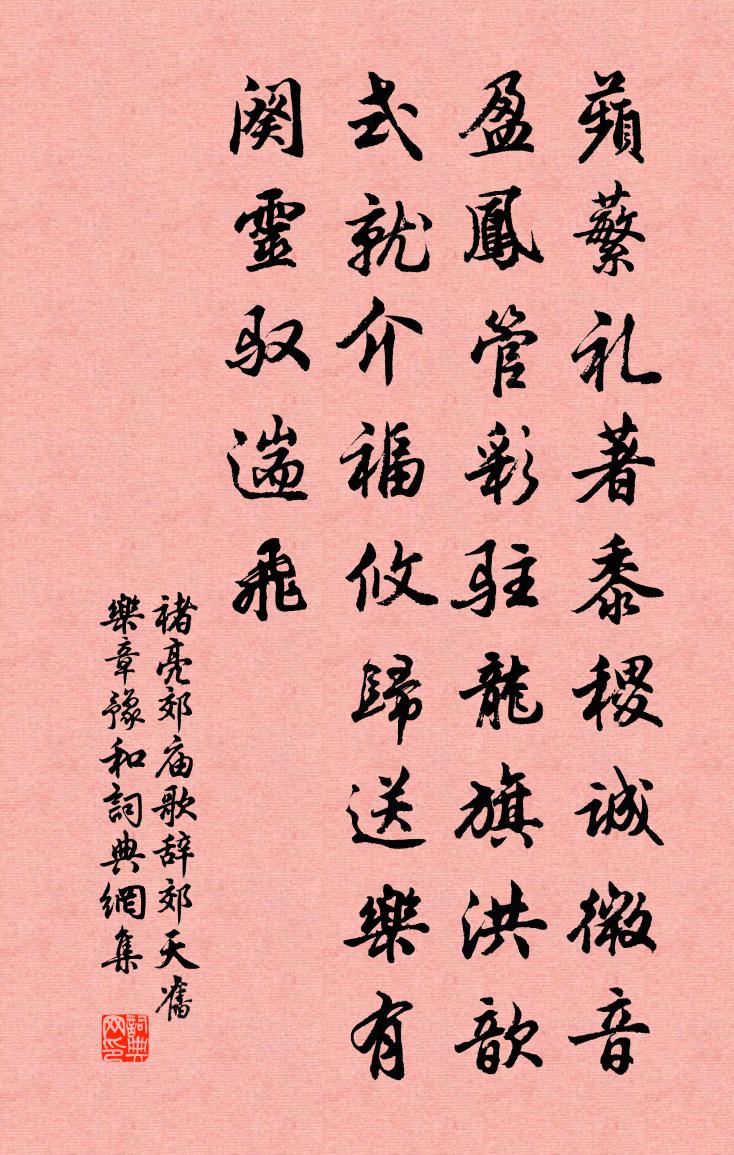 蘋蘩礼著黍稷誠微音
盈鳳管彩駐龍旗洪歆
式就介福攸歸送樂有
闋靈驭遄飛
褚亮郊庙歌辞郊天舊
樂章豫和詞典網集
詞典网印